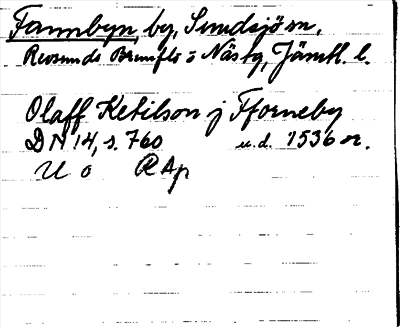 Fannbyn, by, Sundsjö sn,
Revsunds Brunflo o Näs tg, Jämtl. l.
Olaff Ketilson j Fforneby
DN 14, s. 760 u.d. 1536 or.
U o RAp